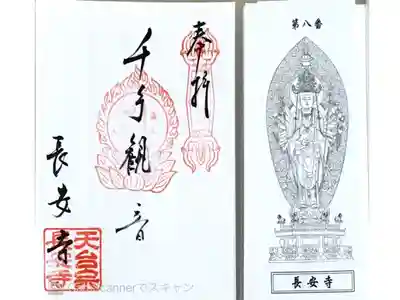 奉拝
千手観音
長安寺
天台宗
長安寺
第八番
長安寺
Scannerでスキャン